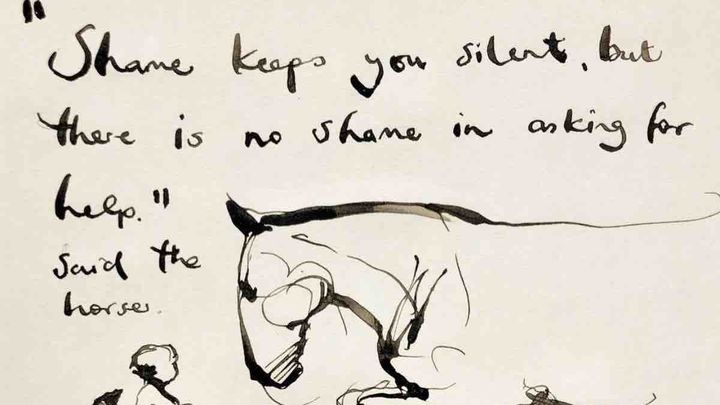 "Shame keeps you silent, but
there is no shame in asking for
help."
said the
horse.